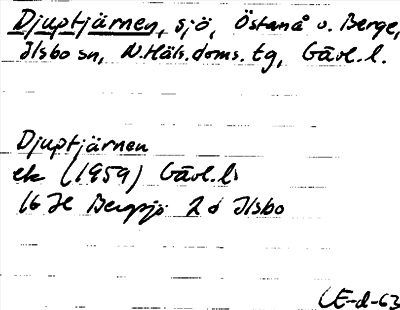 Djuptjärnen, sjö, Östanå o. Berge,
Ilsbo sn, N.Häls.doms.tg, Gävl.l.
Djuptjärnen
ek (1959) Gävl.l.
16 H Bergsjö 2 d Ilsbo
E-d-63